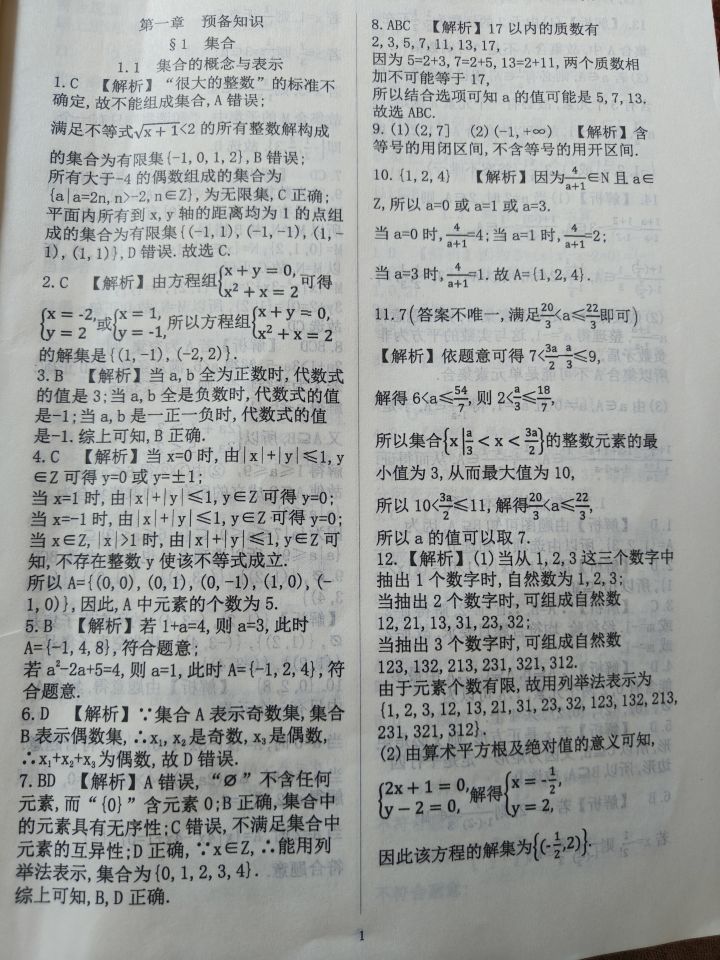 第一章 预备知识
§1 集合
1.1 集合的概念与表示
1.C 【解析】“很大的整数”的标准不
确定,故不能组成集合,A错误;
满足不等式√(x+1)<2 的所有整数解构成
的集合为有限集{-1,0,1,2},B错误;
所有大于-4的偶数组成的集合为
{a|a=2n,n>-2,n∈Z},为无限集,C正确;
平面内所有到x,y轴的距离均为1的点组
成的集合为有限集{(-1,1),(-1,-1),(1,-
1),(1,1)},D错误.故选C.
2.C 【解析】由方程组{x+y=0, x²+x=2 可得
{x=-2, y=2 或{x=1, y=-1, 所以方程组{x+y=0, x²+x=2
的解集是{(1,-1),(-2,2)}.
3.B 【解析】当a,b全为正数时,代数式
的值是3;当a,b全是负数时,代数式的值
是-1;当a,b是一正一负时,代数式的值
是-1.综上可知,B正确.
4.C 【解析】当x=0时,由|x|+|y|≤1,y
∈Z可得y=0或y=±1;
当x=1时,由|x|+|y|≤1,y∈Z可得y=0;
当x=-1时,由|x|+|y|≤1,y∈Z可得y=0;
当x∈Z,|x|>1时,由|x|+|y|≤1,y∈Z可
知,不存在整数y使该不等式成立.
所以A={(0,0),(0,1),(0,-1),(1,0),(-
1,0)},因此,A中元素的个数为5.
5.B 【解析】若1+a=4,则a=3,此时
A={-1,4,8},符合题意;
若a²-2a+5=4,则a=1,此时A={-1,2,4},符
合题意.
6.D 【解析】∵集合A表示奇数集,集合
B表示偶数集,∴x₁,x₂是奇数,x₃是偶数,
∴x₁+x₂+x₃为偶数,故D错误.
7.BD 【解析】A错误,“∅”不含任何
元素,而“{0}”含元素0;B正确,集合中
的元素具有无序性;C错误,不满足集合中
元素的互异性;D正确,∵x∈Z,∴能用列
举法表示,集合为{0,1,2,3,4}.
综上可知,B,D正确.
8.ABC 【解析】17以内的质数有
2,3,5,7,11,13,17,
因为5=2+3,7=2+5,13=2+11,两个质数相
加不可能等于17,
所以结合选项可知a的值可能是5,7,13.
故选ABC.
9.(1)(2,7] (2)(-1,+∞) 【解析】含
等号的用闭区间,不含等号的用开区间.
10.{1,2,4} 【解析】因为4/(a+1)∈N且a∈
Z,所以a=0或a=1或a=3.
当a=0时,4/(a+1)=4;当a=1时,4/(a+1)=2;
当a=3时,4/(a+1)=1.故A={1,2,4}.
11.7(答案不唯一,满足20/3<a≤22/3即可)
【解析】依题意可得7<3a/2-a/3≤9,
解得6<a≤54/7,则2<a/3≤18/7,
所以集合{x|a/3<x<3a/2}的整数元素的最
小值为3,从而最大值为10,
所以10<3a/2≤11,解得20/3<a≤22/3,
所以a的值可以取7.
12.【解析】(1)当从1,2,3这三个数字中
抽出1个数字时,自然数为1,2,3;
当抽出2个数字时,可组成自然数
12,21,13,31,23,32;
当抽出3个数字时,可组成自然数
123,132,213,231,321,312.
由于元素个数有限,故用列举法表示为
{1,2,3,12,13,21,31,23,32,123,132,213,
231,321,312}.
(2)由算术平方根及绝对值的意义可知,
{2x+1=0, y-2=0, 解得{x=-1/2, y=2,
因此该方程的解集为{(-1/2,2)}.
1